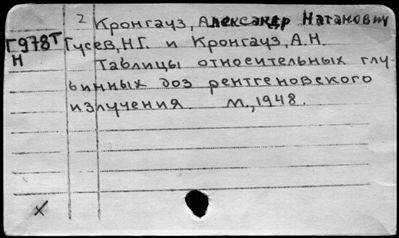 2 Кронгауз, Александр Натанович
Г978т Гусев, Н.Г. и Кронгауз, А.Н.
Н Таблицы относительных глу-
бинных доз рентгеновского
излучения. М., 1948.
x